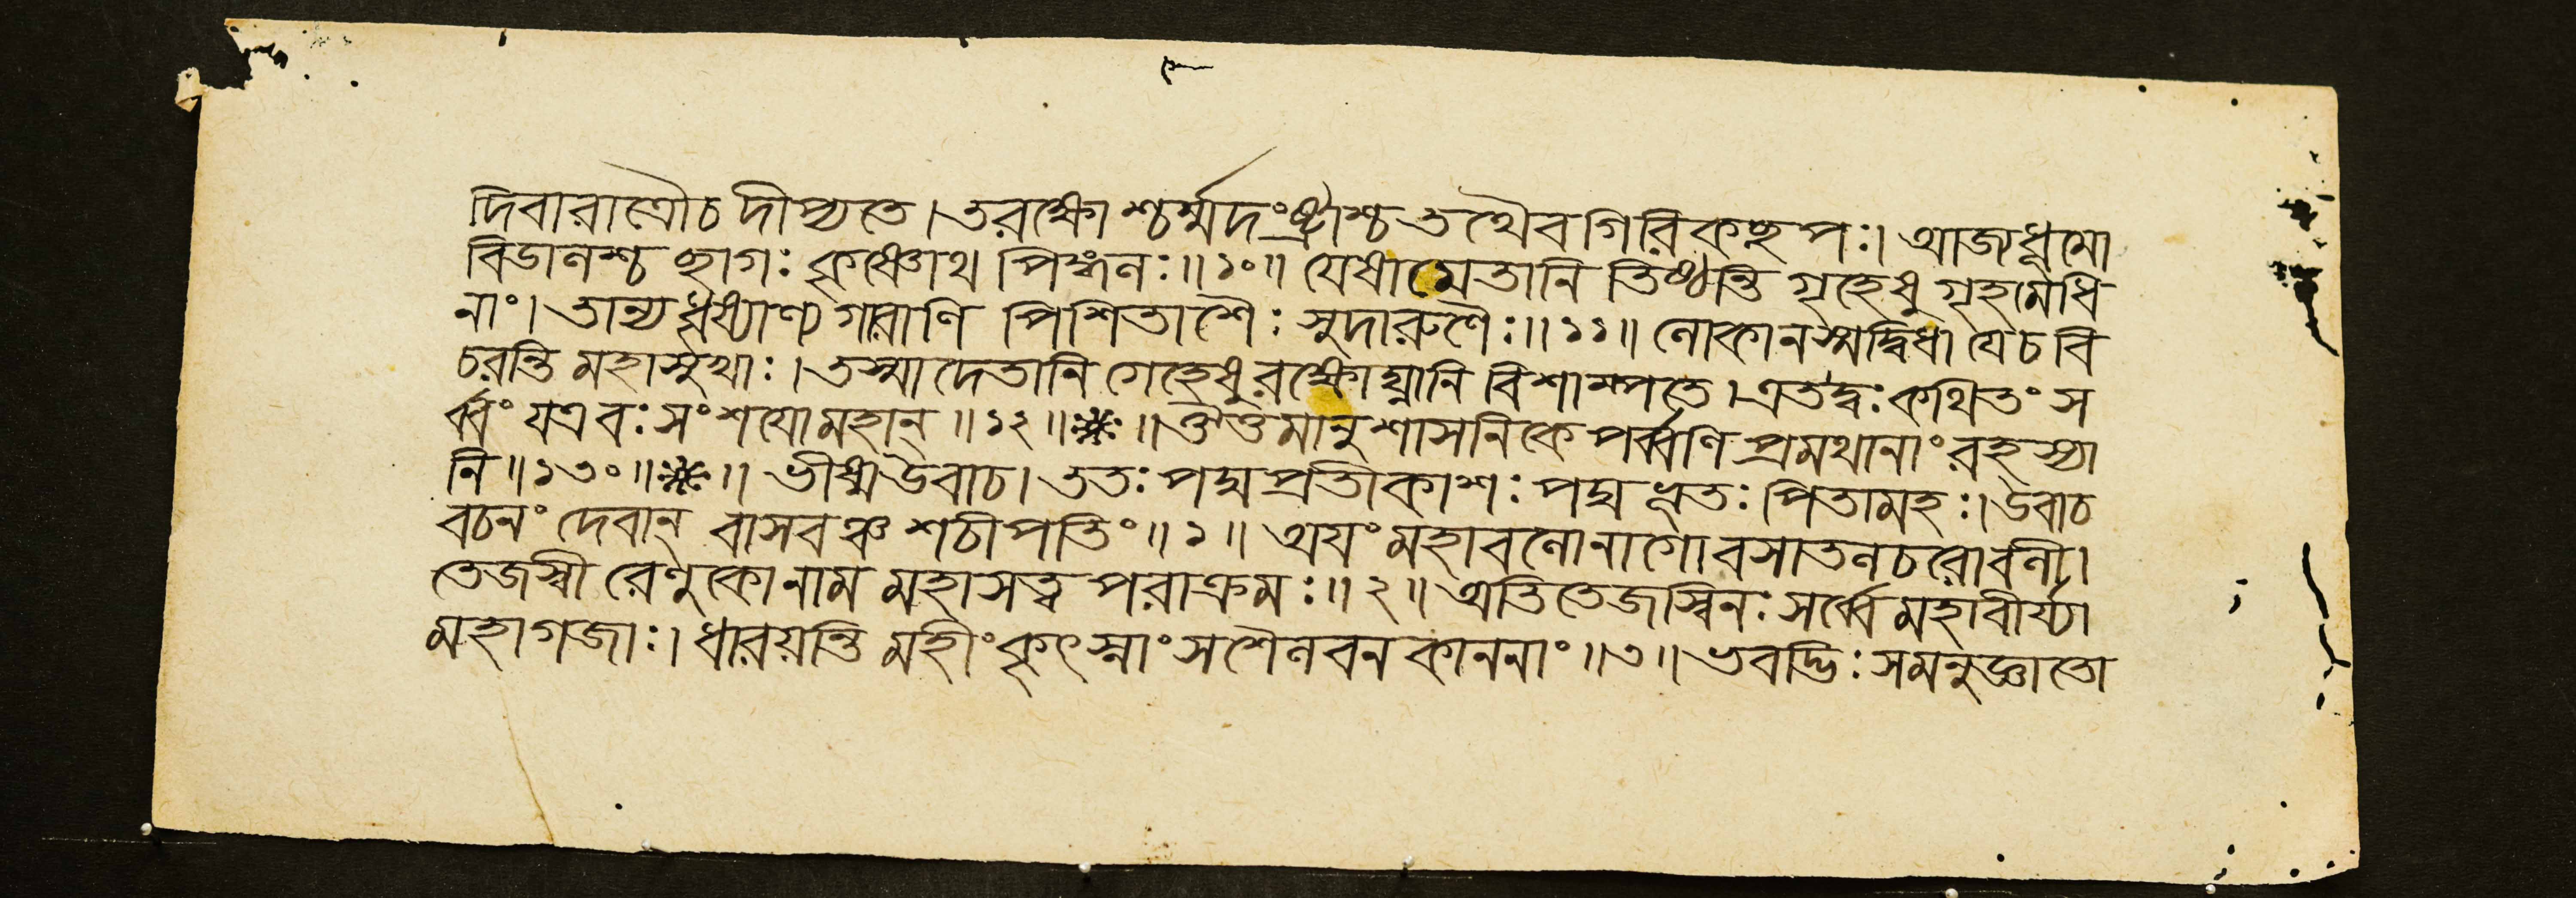 দিবারাত্রৌচ দীপ্যতে। তরক্ষোশ্চর্ম্মদংষ্ট্রাশ্চ তথৈব গিরিকচ্ছপঃ। আজ্যধূমো
বিডালশ্চ ছাগঃ কৃষ্ণোথ পিঙ্গলঃ॥১০॥ যেষামেতানি তিষ্ঠন্তি গৃহেষু গৃহমেধি
নাং। তান্যধৃষ্যাণ্যগারাণি পিশিতাশৈঃ সুদারুণৈঃ॥১১॥ লোকানস্মদ্বিধা যেচ বি
চরন্তি মহাসুখাঃ। তস্মাদেতানি গেহেষু রক্ষোঘ্নানি বিশাম্পতে। এতদ্বঃ কথিতং স
র্ব্বং যত্র বঃ সংশযোমহান্॥১২॥ ॥ ঔত্তমানুশাসনিকে পর্ব্বণি প্রমথানাং রহস্যা
নি॥১৩০॥ ॥ ভীষ্মউবাচ। ততঃ পদ্মপ্রতীকাশঃ পদ্মদ্ভূতঃ পিতামহঃ। উবাচ
বচনং দেবান্ বাসবঞ্চ শচীপতিং॥১॥ অযং মহাবলোনাগো রসাতলচরোবলী।
তেজস্বী রেণুকোনাম মহাসত্ত্ব পরাক্রমঃ॥২॥ অতিতেজস্বিনঃ সর্ব্বে মহাবীর্য্যা
মহাগজাঃ। ধারয়ন্তি মহীং কৃৎস্নাং সশৈলবন কাননাং॥৩॥ ভবদ্ভিঃ সমনুজ্ঞাতো